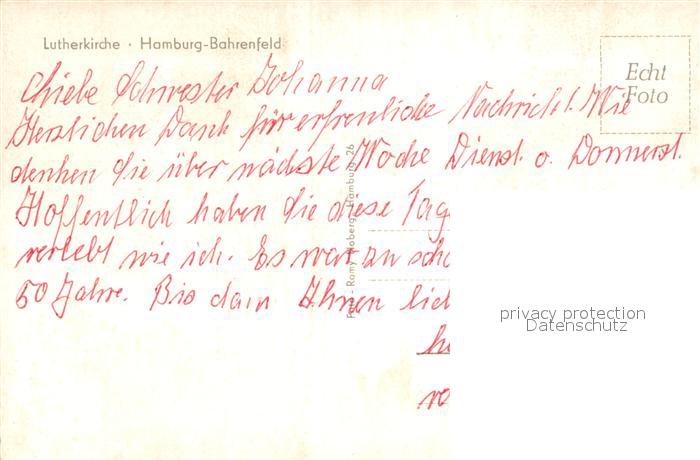 Lutherkirche · Hamburg-Bahrenfeld
Echt
Foto
Liebe Schwester Johanna
Herzlichen Dank für erfreuliche Nachricht! Wie
denken Sie über nächste Woche Dienst. o. Donnerst.
Hoffentlich haben Sie diese Tag
verlebt wie ich. Es war zu sch
50 Jahre. Bis dann Ihnen lieb
Hamburg 26
privacy protection
Datenschutz